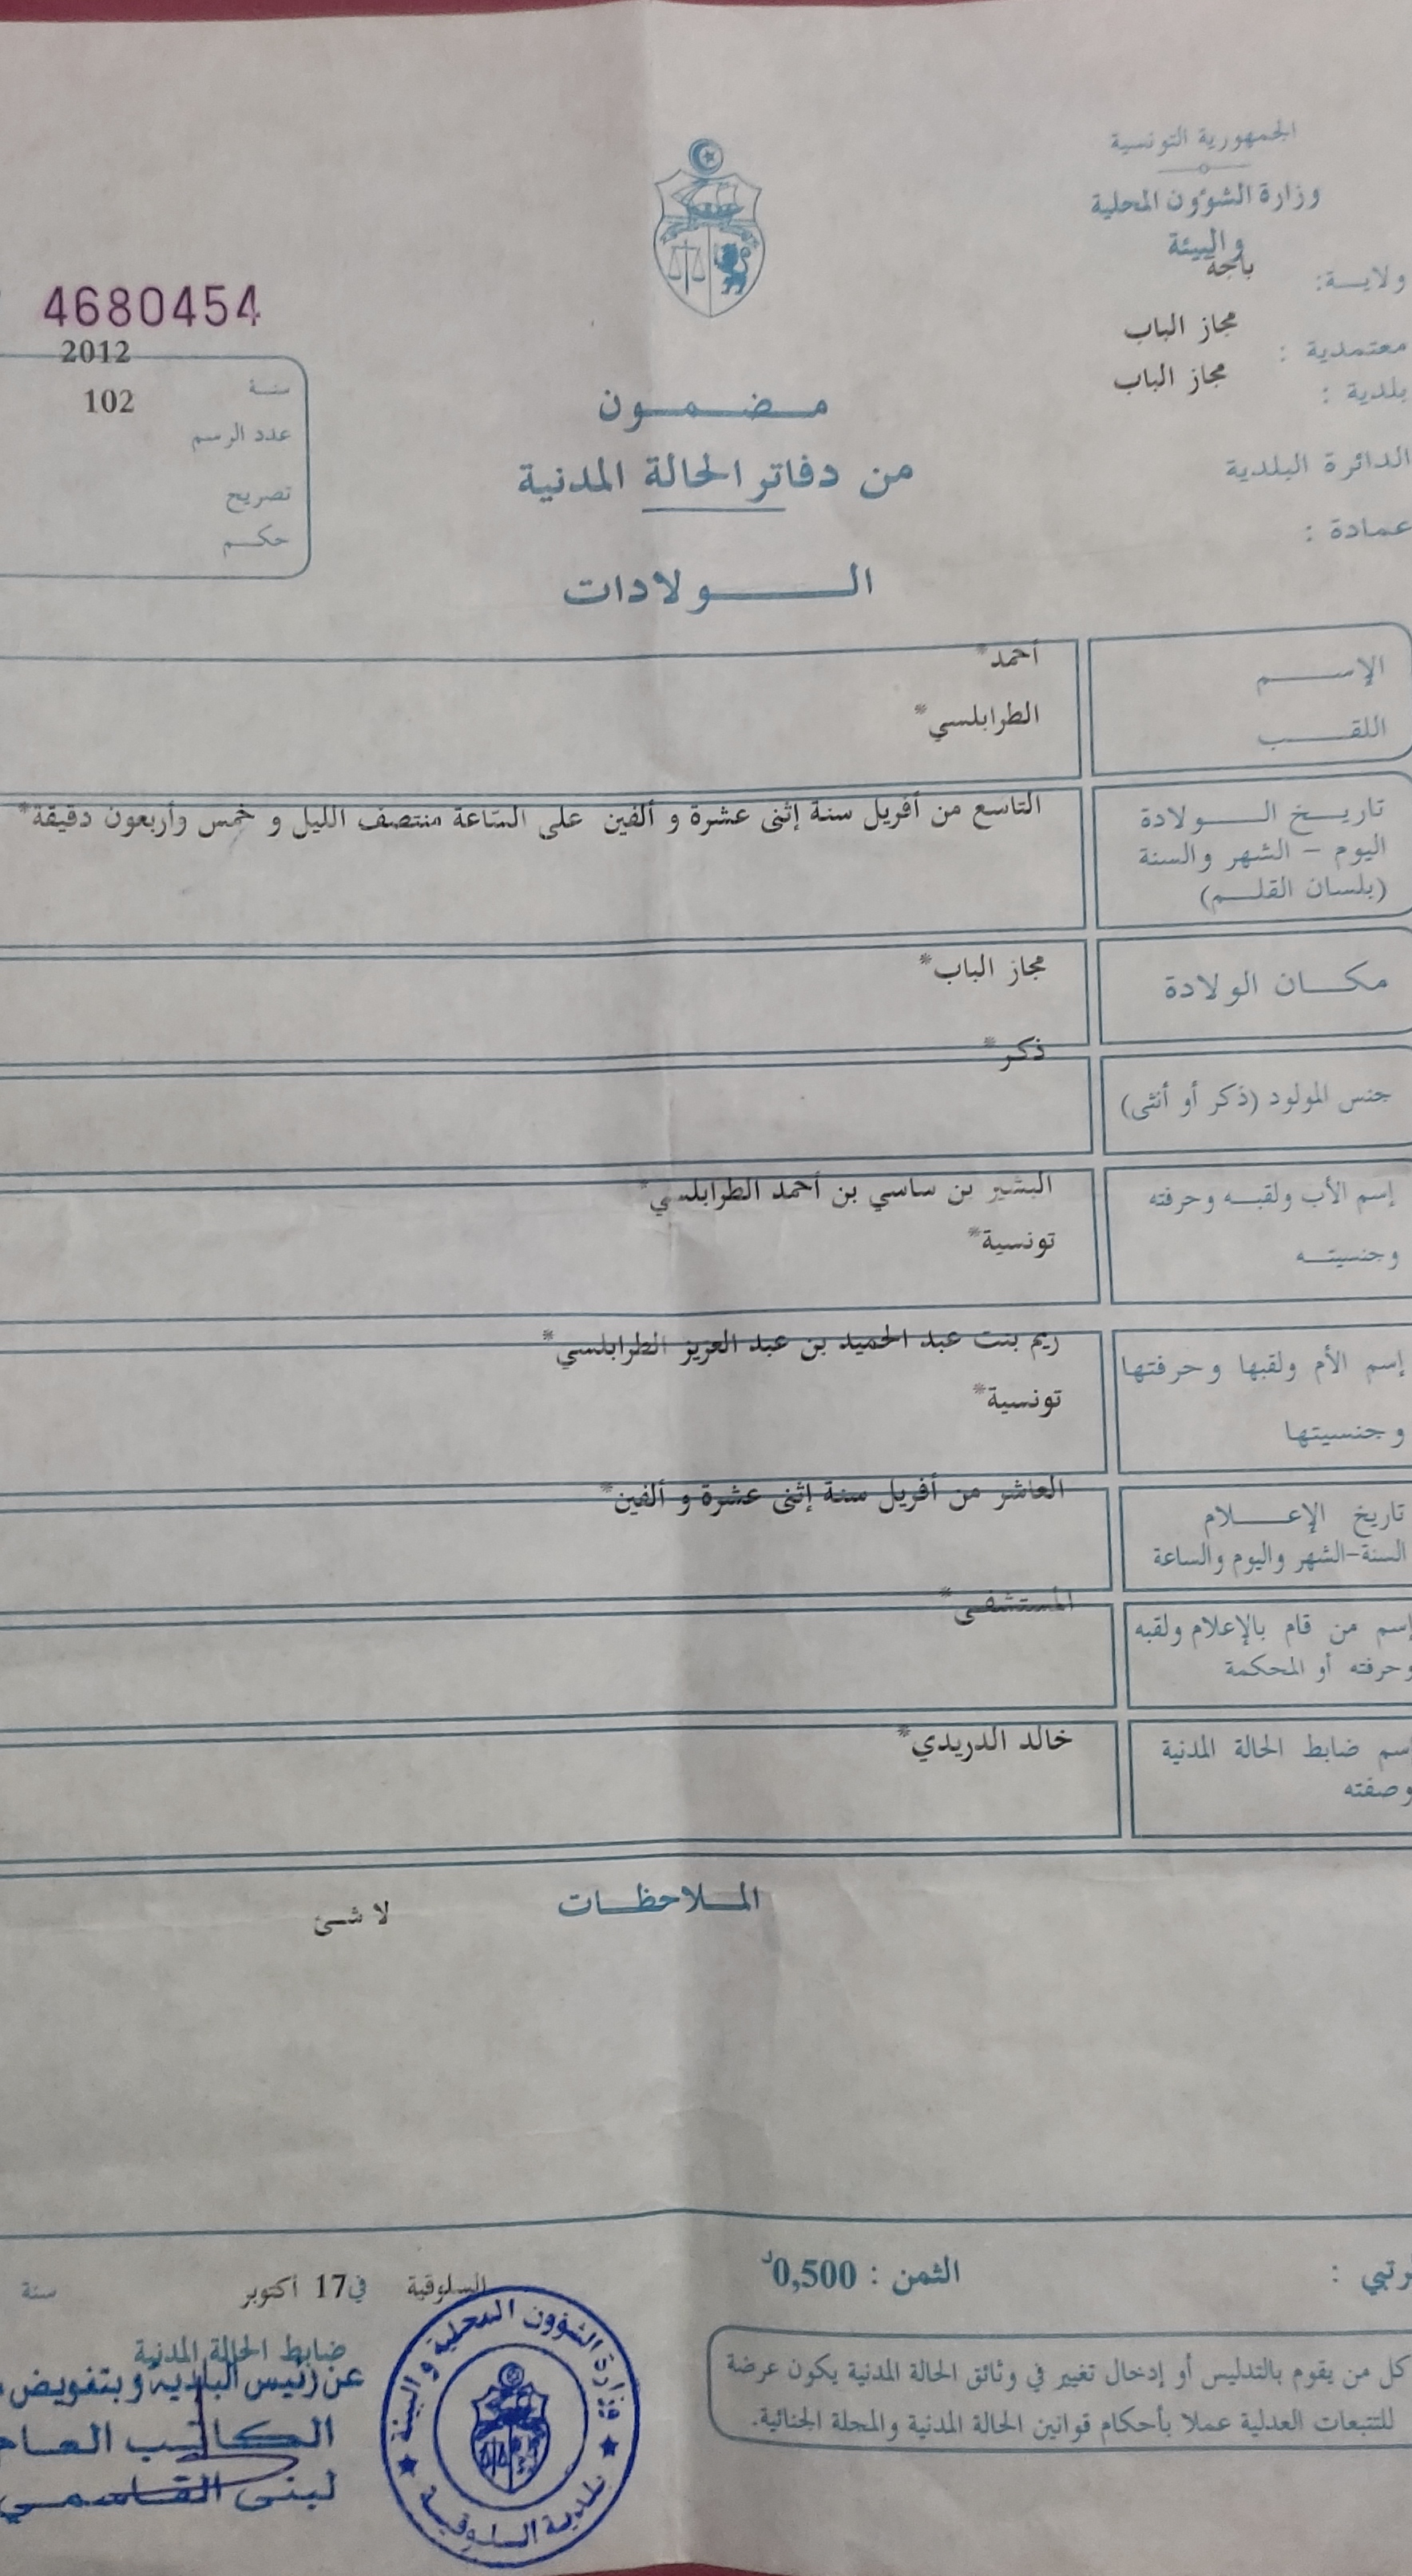 الجمهورية التونسية
وزارة الشؤون المحلية
والبيئة
ولاية: باجة
معتمدية : مجاز الباب
بلدية : مجاز الباب
الدائرة البلدية
عمادة :
4680454
2012
سنة
102
عدد الرسم
تصريح
حكم
مضمون
من دفاتر الحالة المدنية
الولادات
الإسم أحمد*
اللقب الطرابلسي*
تاريخ الولادة
اليوم - الشهر والسنة
(بلسان القلم)
التاسع من أفريل سنة إثنى عشرة و ألفين على الساعة منتصف الليل و خمس وأربعون دقيقة*
مكان الولادة مجاز الباب*
جنس المولود (ذكر أو أنثى) ذكر*
إسم الأب ولقبه وحرفته البشير بن ساسي بن أحمد الطرابلسي*
وجنسيته تونسية*
إسم الأم ولقبها وحرفتها ريم بنت عبد الحميد بن عبد العزيز الطرابلسي*
وجنسيتها تونسية*
تاريخ الإعلام العاشر من أفريل سنة إثنى عشرة و ألفين*
السنة-الشهر واليوم والساعة
إسم من قام بالإعلام ولقبه المستشفى*
وحرفته أو المحكمة
إسم ضابط الحالة المدنية خالد الدريدي*
وصفته
الملاحظات
لا شئ
الثمن : 0,500د
كل من يقوم بالتدليس أو إدخال تغيير في وثائق الحالة المدنية يكون عرضة
للتتبعات العدلية عملا بأحكام قوانين الحالة المدنية والمجلة الجنائية.
السلوقية في 17 أكتوبر سنة
ضابط الحالة المدنية
عن رئيس البلدية وبتفويض
الكاتب العام
لبنى القاسمي
وزارة الشؤون المحلية والبيئة
بلدية السلوقية